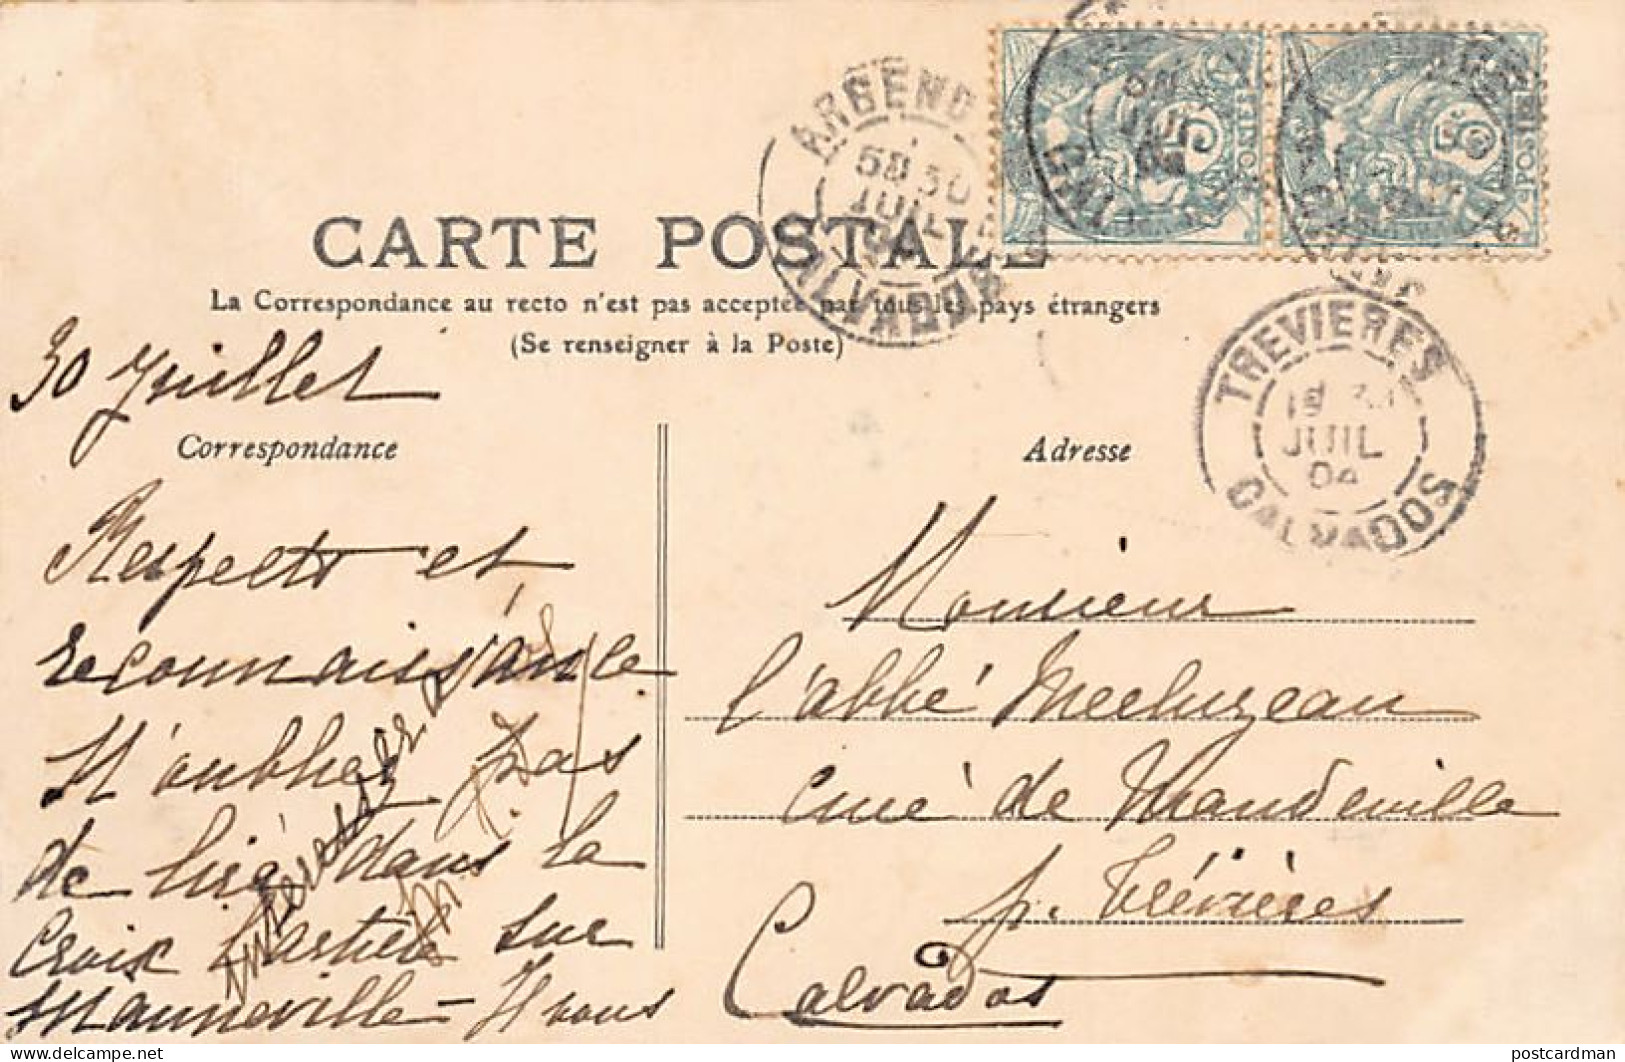 CARTE POSTALE
La Correspondance au recto n'est pas acceptée par tous les pays étrangers
(Se renseigner à la Poste)
ARGENC
CALVADOS
TREVIERES
JUIL
04
CALVADOS
30 Juillet
Correspondance
Respects et
reconnaissance
N'oubliez pas
de lire dans la
Croix l'article sur
Manneville - Il vous
intéressera
Adresse
Monsieur
l'abbé
curé de Mandeville
p. Trévières
Calvados
postcardman